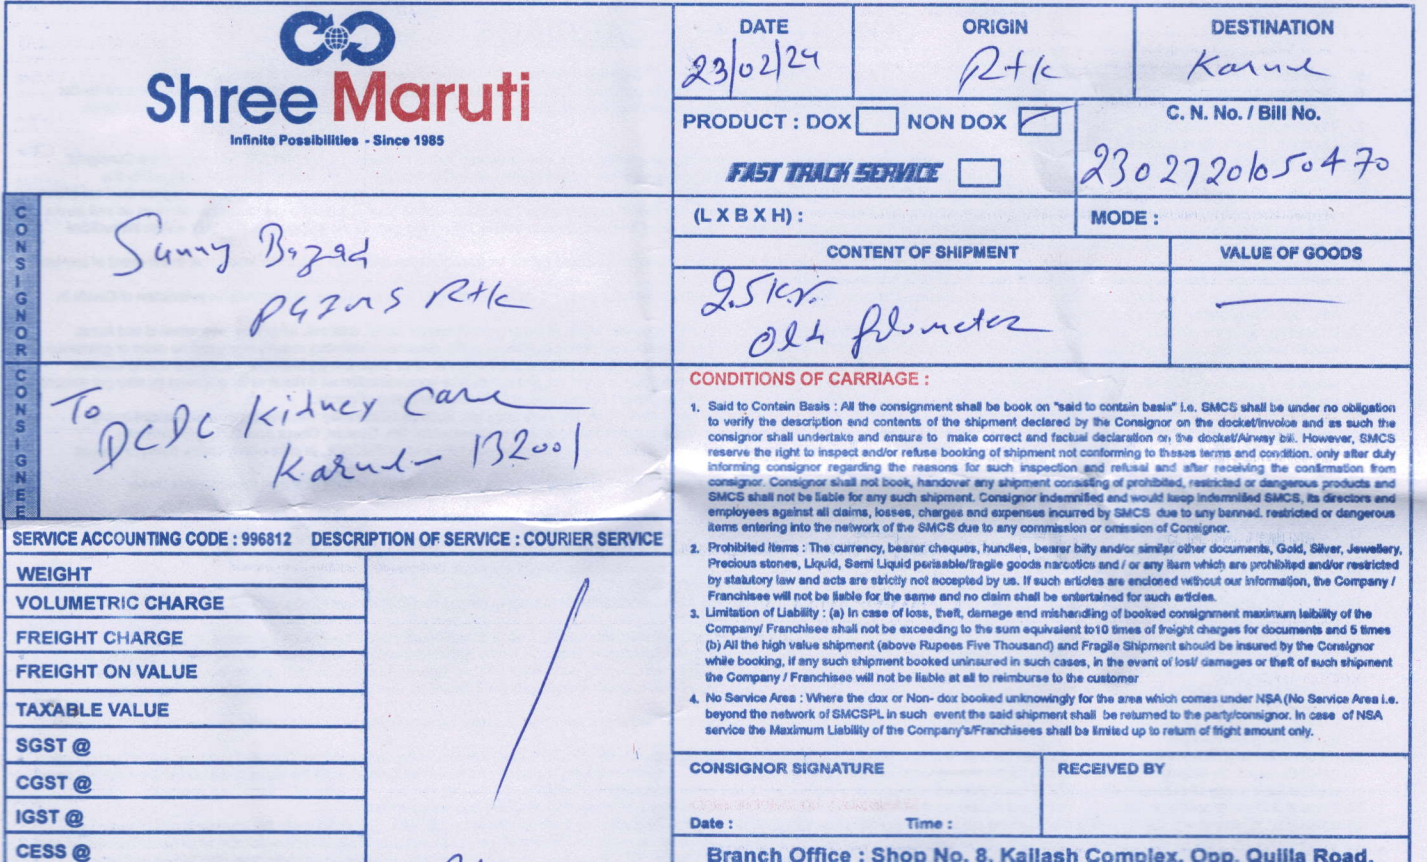 Shree Maruti
Infinite Possibilities - Since 1985
DATE
23/02/24
ORIGIN
Rtk
DESTINATION
Karnal
PRODUCT : DOX NON DOX
FAST TRACK SERVICE
C. N. No. / Bill No.
23027201050470
(L X B X H) :
MODE :
CONSIGNOR
Sunny
PGIMS Rtk
CONSIGNEE
To
DCDC Kidney Care
Karnal - 132001
CONTENT OF SHIPMENT
Old
VALUE OF GOODS
SERVICE ACCOUNTING CODE : 996812 DESCRIPTION OF SERVICE : COURIER SERVICE
WEIGHT
VOLUMETRIC CHARGE
FREIGHT CHARGE
FREIGHT ON VALUE
TAXABLE VALUE
SGST @
CGST @
IGST @
CESS @
CONDITIONS OF CARRIAGE :
1. Said to Contain Basis : All the consignment shall be book on "said to contain basis" i.e. SMCS shall be under no obligation
to verify the description and contents of the shipment declared by the Consignor on the docket/Invoice and as such the
consignor shall undertake and ensure to make correct and factual declaration on the docket/Airway bill. However, SMCS
reserve the right to inspect and/or refuse booking of shipment not conforming to theses terms and condition. only after duly
informing consignor regarding the reasons for such inspection and refusal and after receiving the confirmation from
consignor. Consignor shall not book, handover any shipment consisting of prohibited, restricted or dangerous products and
SMCS shall not be liable for any such shipment. Consignor indemnified and would keep indemnified SMCS, its directors and
employees against all claims, losses, charges and expenses incurred by SMCS due to any banned, restricted or dangerous
items entering into the network of the SMCS due to any commission or omission of Consignor.
2. Prohibited Items : The currency, bearer cheques, hundies, bearer bilty and/or similar other documents, Gold, Silver, Jewellery,
Precious stones, Liquid, Semi Liquid perisable/fragile goods narcotics and / or any item which are prohibited and/or restricted
by statutory law and acts are strictly not accepted by us. If such articles are enclosed without our Information, the Company /
Franchisee will not be liable for the same and no claim shall be entertained for such articles.
3. Limitation of Liability : (a) In case of loss, theft, damage and mishandling of booked consignment maximum laibility of the
Company/ Franchisee shall not be exceeding to the sum equivalent to10 times of freight charges for documents and 5 times
(b) All the high value shipment (above Rupees Five Thousand) and Fragile Shipment should be insured by the Consignor
while booking, if any such shipment booked uninsured in such cases, in the event of lost/ damages or theft of such shipment
the Company / Franchisee will not be liable at all to reimburse to the customer
4. No Service Area : Where the dox or Non- dox booked unknowingly for the area which comes under NSA (No Service Area i.e.
beyond the network of SMCSPL in such event the said shipment shall be returned to the party/consignor. In case of NSA
service the Maximum Liability of the Company's/Franchisees shall be limited up to return of fright amount only.
CONSIGNOR SIGNATURE
RECEIVED BY
Date : Time :
Branch Office : Shop No. 8, Kailash Complex, Opp. Quilla Road,